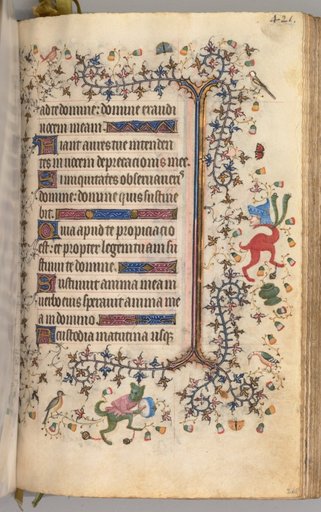 426.
ad te domine: domine exaudi
vocem meam.
Fiant aures tue intenden
tes in vocem deprecationis mee.
Si iniquitates observaveris
domine: domine quis sustine
bit.
Quia apud te propiciacio
est: et propter legem tuam su
stinui te domine.
Sustinuit anima mea in
verbo eius speravit anima me
a in domino.
A custodia matutina usq